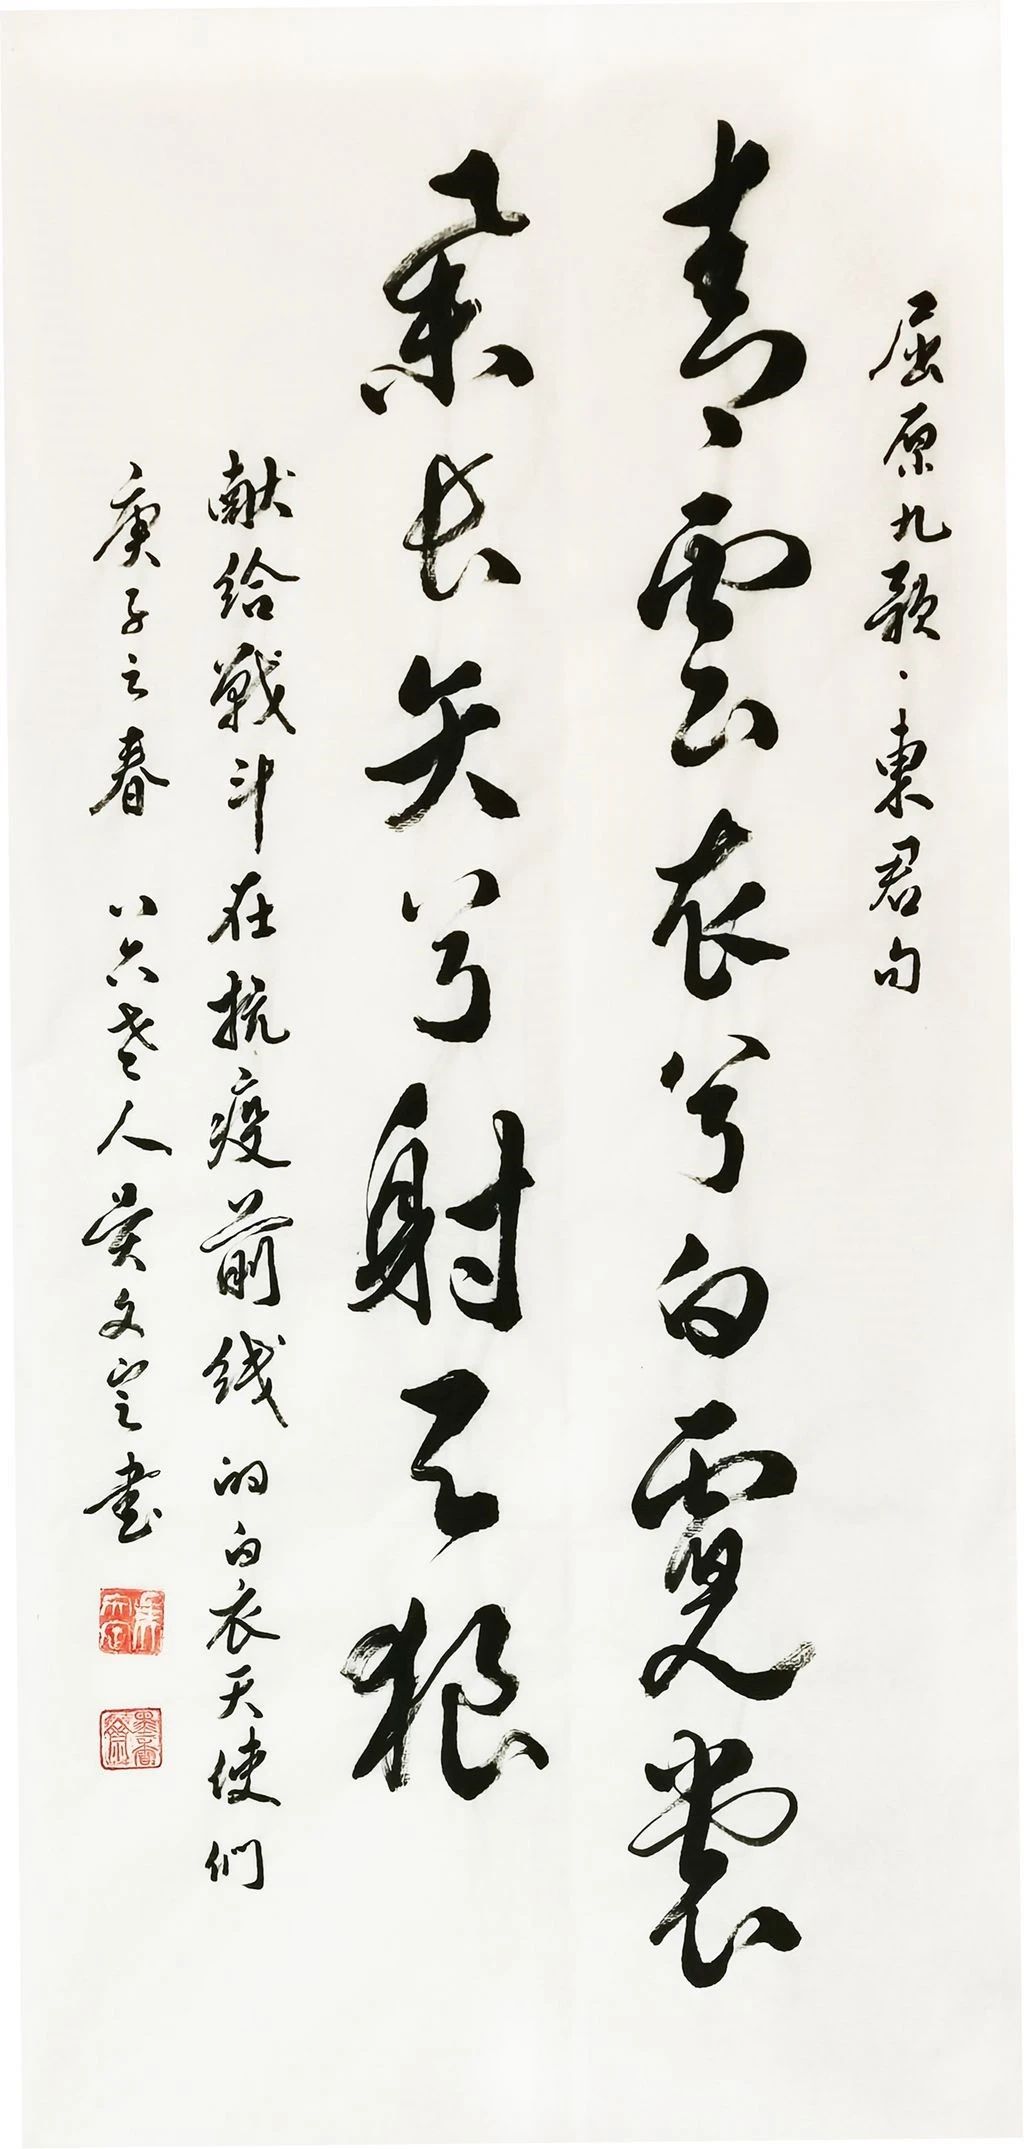 屈原九歌·東君句
青雲衣兮白霓裳
舉长矢兮射天狼
献给戰斗在抗疫前线的白衣天使們
庚子之春 八六老人吴文定書
墨香齋